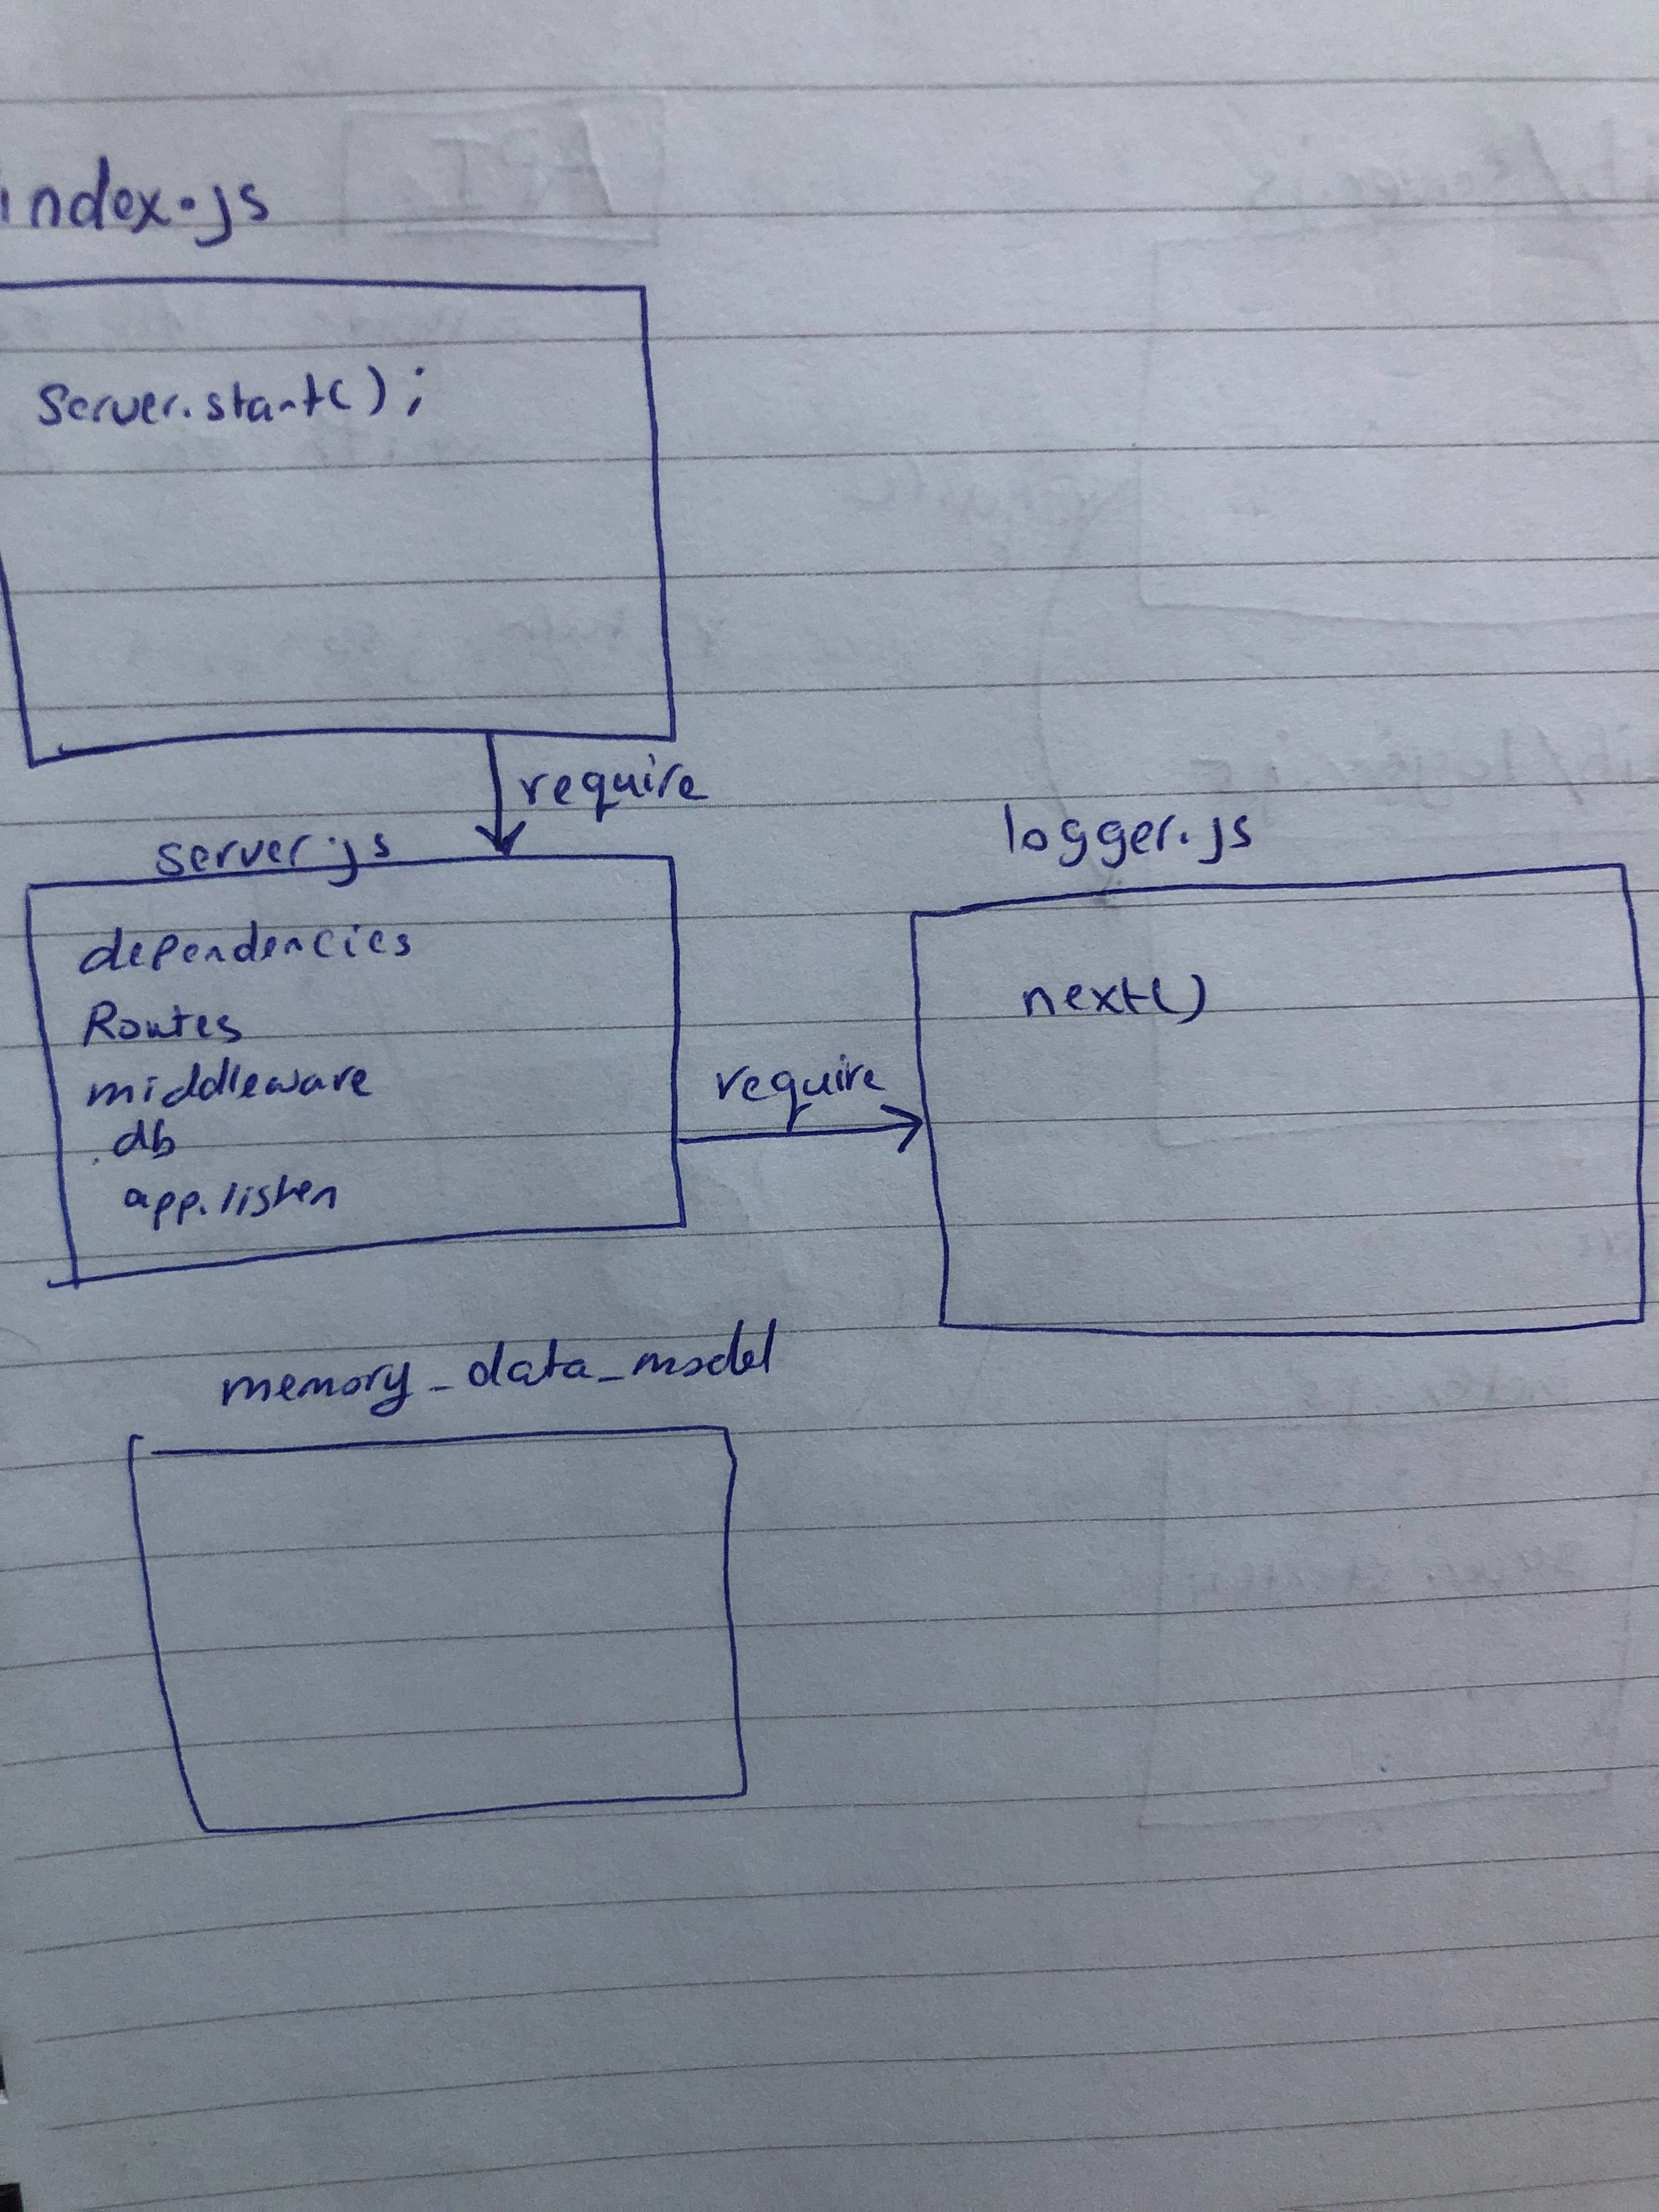 index.js
Server.start();
require
server.js
dependencies
Routes
middleware
db
app.listen
require
logger.js
next()
memory_data_model